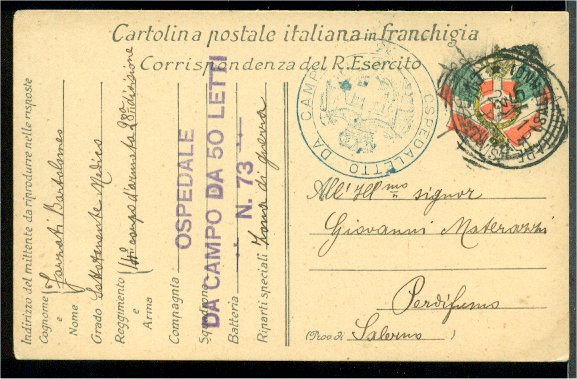 Cartolina postale italiana in franchigia
Corrispondenza del R. Esercito
OSPEDALETTO DA CAMPO
All'Ill.mo signor
Giovanni Materazzi
Perdifumo
(Prov. di Salerno)
Indirizzo del mittente da riprodurre nelle risposte
Cognome e Nome Bartolomeo
Grado Sottotenente Medico
Reggimento e Arma corpo d'armata divisione
Compagnia
Squadrone
Batteria
Riparti speciali Zona di guerra
OSPEDALE
DA CAMPO DA 50 LETTI
N. 73